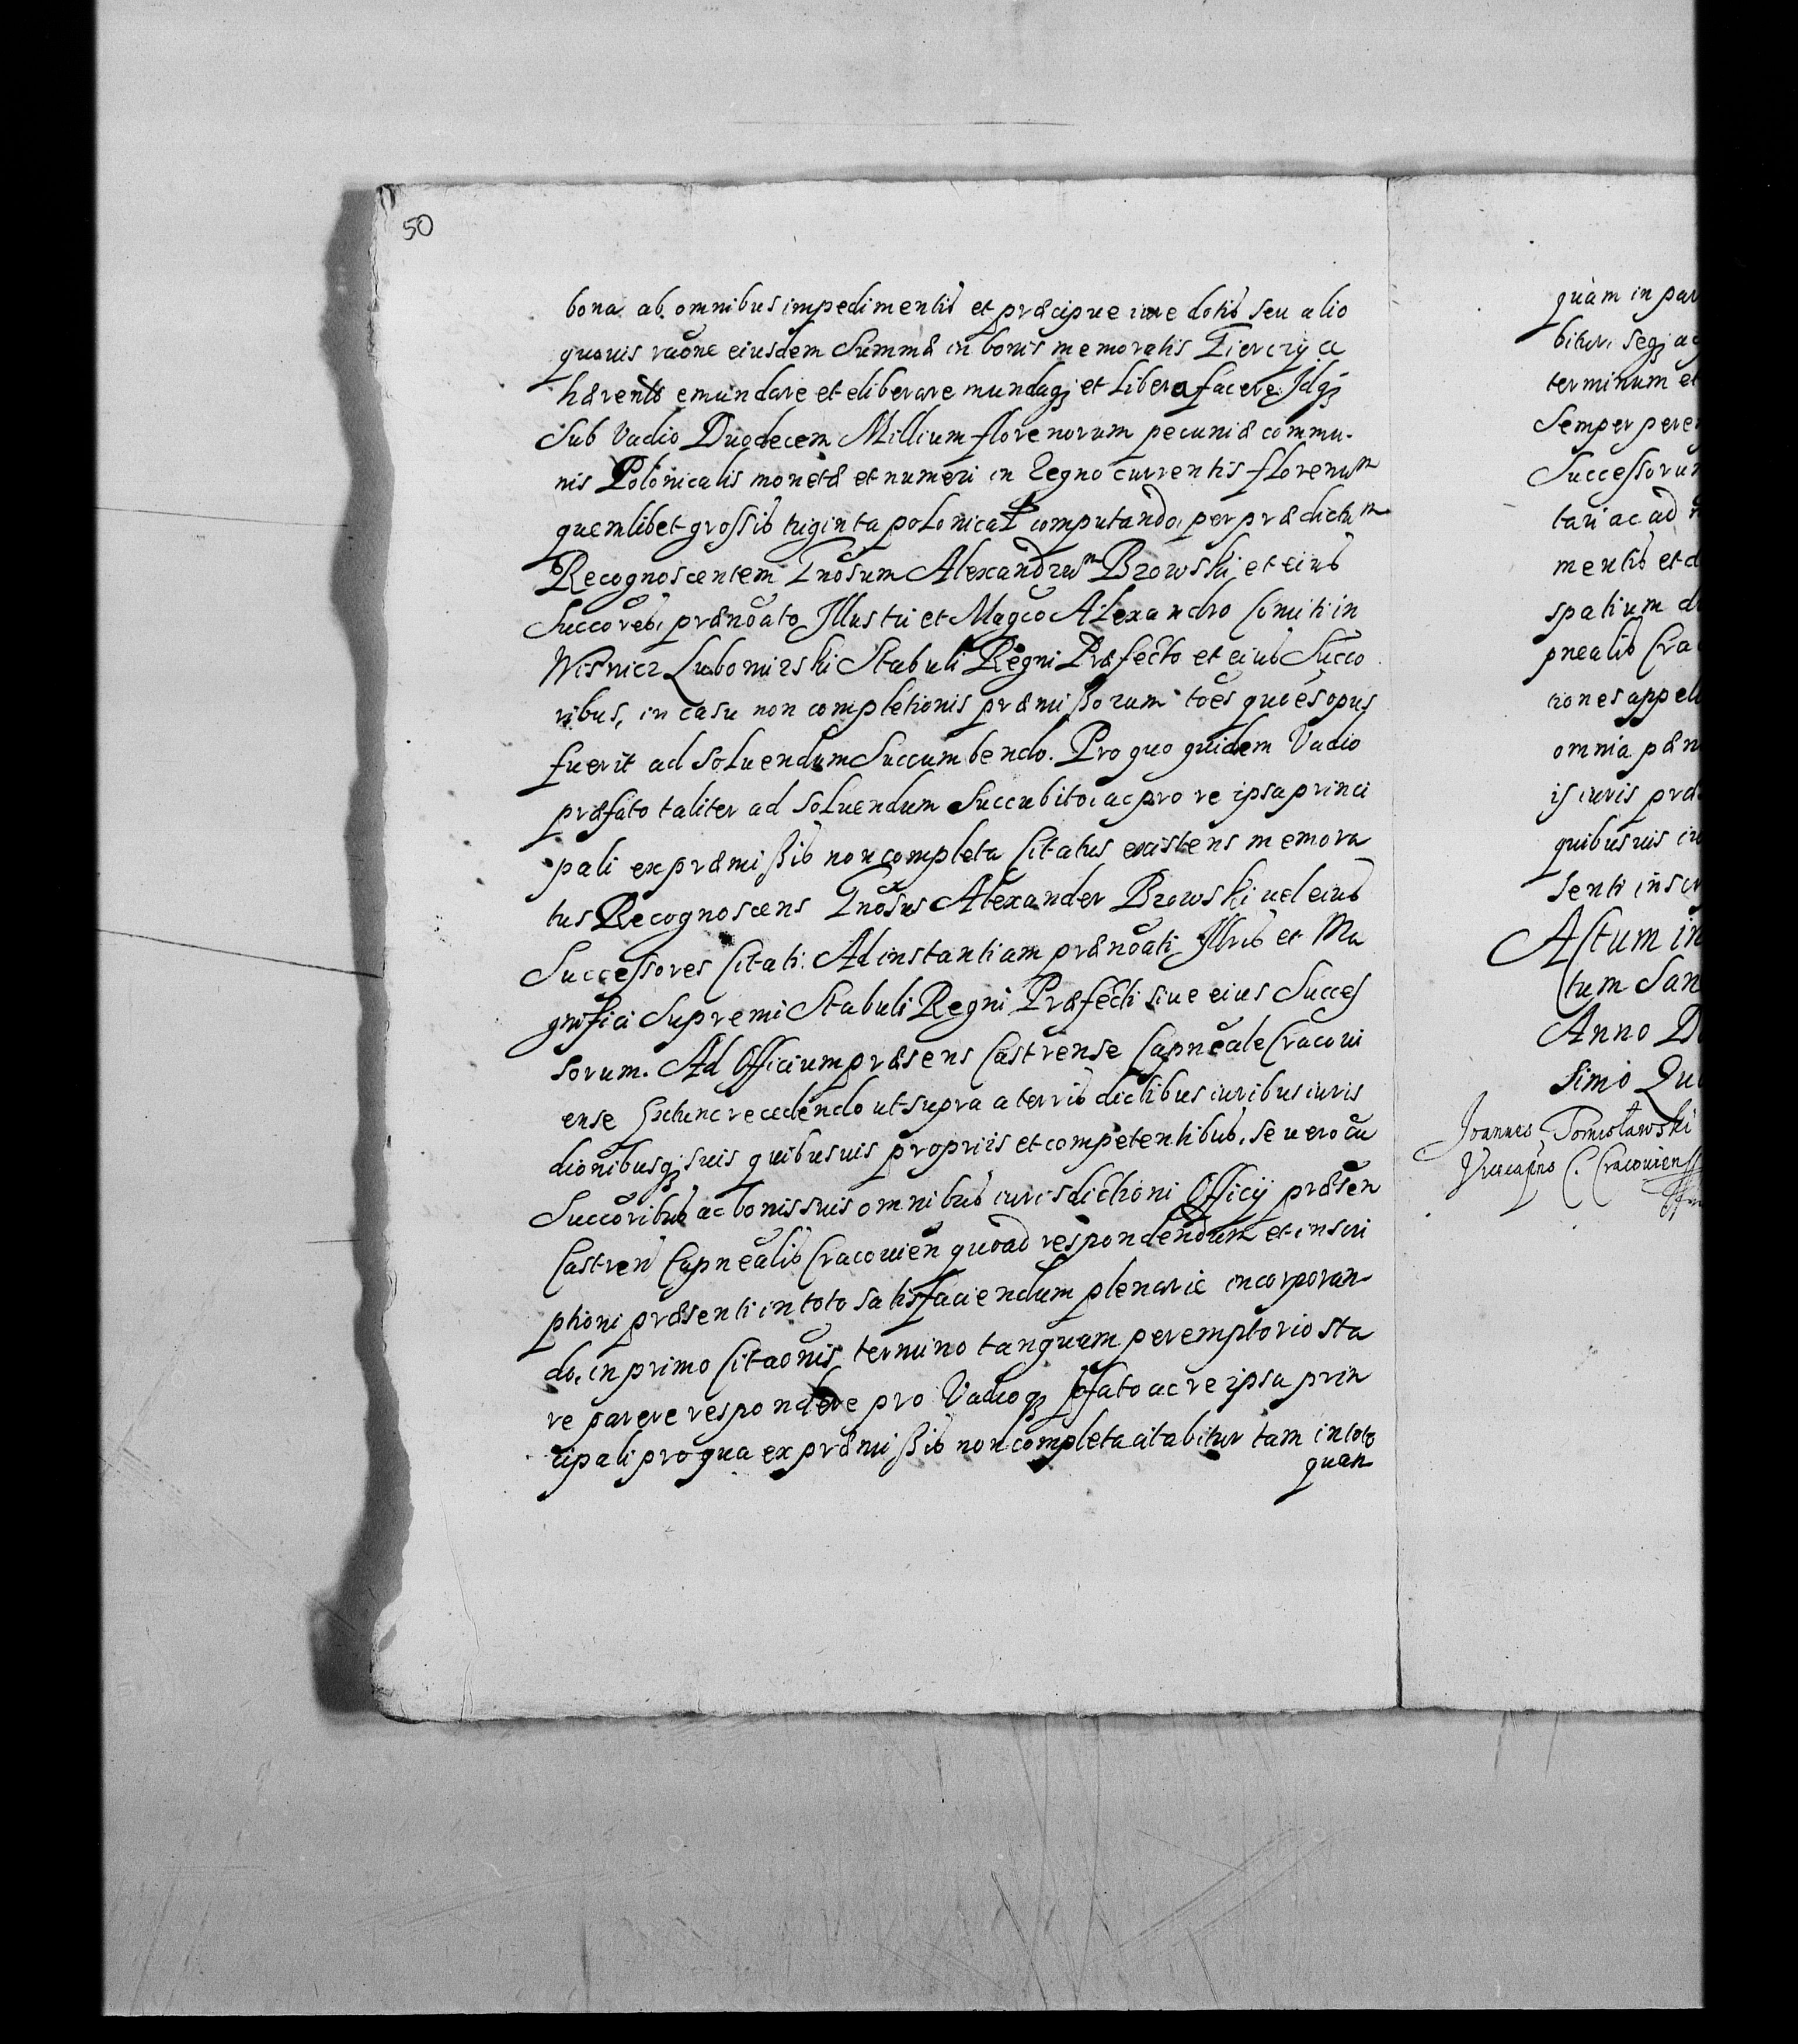 50
bona ab omnibus impedimentis et præcipue iure dotis seu alio
quouis raõne eiusdem Summæ in bonis memoratis Tierczÿ a
hærentis emundare et eliberare mundaq; et libera facere. Idq;
Sub Vadio Duodecem Millium florenorum pecuniæ commu-
nis Polonicalis monetæ et numeri in Regno currentis florenum
quemlibet grossis triginta polonical computando, per prædictum
Recognoscentem Gnõsum Alexandrum Brzowski et eius
Succõres, prænõato Illustri et Magco Alexandro Comiti in
Wisnicz Lubomirski Stabuli Regni Præfecto et eius Succo
ribus, in casu non completionis præmissorum toẽs quoẽs opus
fuerit ad soluendum Succumbendo. Pro quo quidem Vadio
præfato taliter ad soluendum Succubito, ac pro re ipsa princi
pali ex præmissis non completa Citatus existens memora
tus Recognoscens Gnõsus Alexander Brzowski uel eius
Successores Citati. Ad instantiam prænõati Illris et Ma
gnifici Supremi Stabuli Regni Præfecti siue eius Succes
sorum. Ad Officium præsens Castrense Capneale Cracoui
ense Extunc recedendo ut supra a terris dictibus iuribus iuris
dionibusq; suis quibusuis propriis et competentibus, se uero cu
Succõribus ac bonis suis omnibus iurisdictioni Officÿ præsen
Castren Capnealis Cracouien quoad respondendum et inscri
ptioni præsenti in toto satisfaciendum plenarie incorporan
do, in primo Citaõnis termino tanquam peremptorio sta
re parere respondere pro Vadioq; pfato ac re ipsa prin
cipali pro qua ex præmissis non completa citabitur tam in toto
quan
quam in par
bitur, seq; ac
terminum et
Semper pere
Successorum
tari ac ad
mentis et d
spatium d
pnealis Cra
ciones appell
omnia pæn
is iuris præ
quibusuis in
senti inscr
Actum in
tum San
Anno D
simo Qu
Joannes
C. Cracouiens